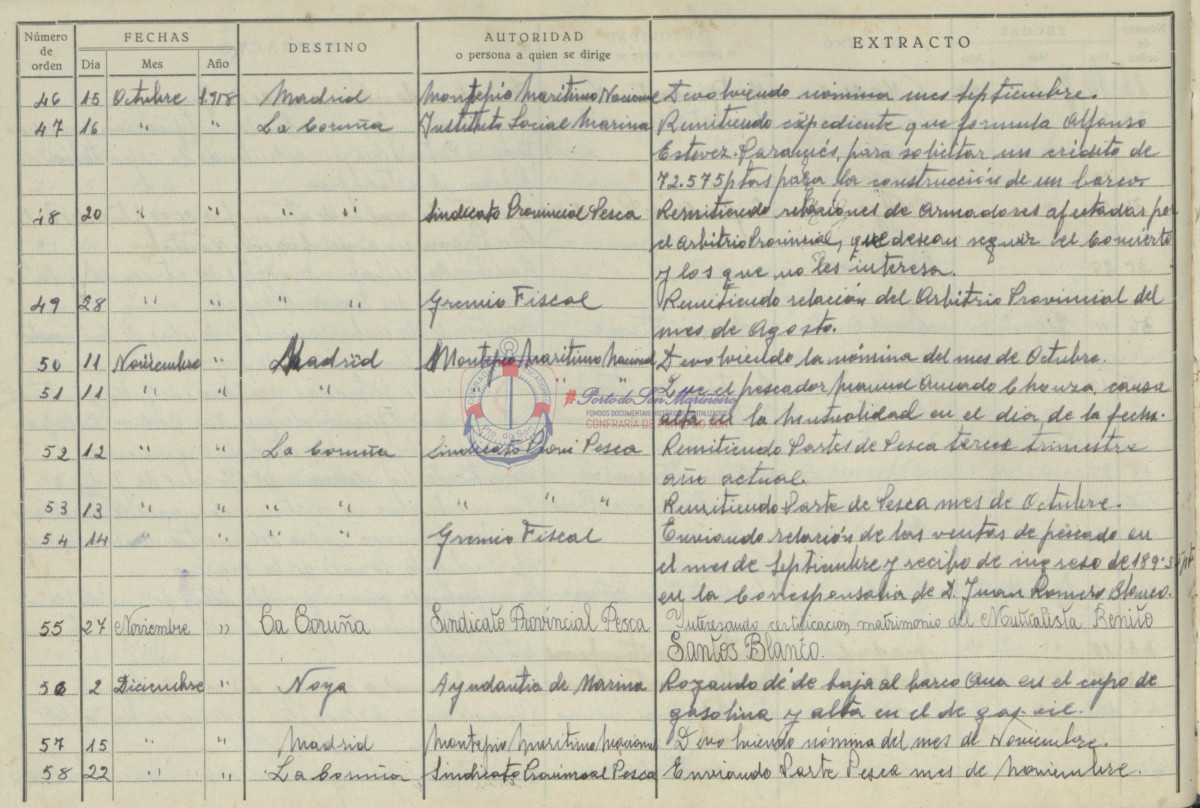 Número de orden FECHAS DESTINO AUTORIDAD o persona a quien se dirige EXTRACTO
Dia Mes Año
46 15 Octubre 1.958 Madrid Montepio Maritimo Nacional Devolviendo nómina mes septiembre.
47 16 " " La Coruña Instituto Social Marina Remitiendo expediente que formula Alfonso
Estevez para solicitar un crédito de
72.575 ptas para la construcción de un barco.
48 20 " " " " Sindicato Provincial Pesca Remitiendo relaciones de Armadores afectadas por
el Arbitrio Provincial, que desean seguir el Concierto
y los que no les interesa.
49 28 " " " " Gremio Fiscal Remitiendo relación del Arbitrio Provincial del
mes de Agosto.
50 11 Noviembre " Madrid Montepio Maritimo Nacional Devolviendo la nómina del mes de Octubre.
51 11 " " " " " Que el pescador Manuel Amado Chouza, causa
alta en la Mutualidad en el día de la fecha.
#Porto do Son Marineiro
FONDOS DOCUMENTAIS HISTÓRICOS DIXITALIZADOS
CONFRARÍA DE PORTO DO SON
52 12 " " La Coruña Sindicato Provi Pesca Remitiendo Partes de Pesca tercer trimestre
año actual.
53 13 " " " " " " " Remitiendo Parte de Pesca mes de Octubre.
54 14 " " " " Gremio Fiscal Enviando relación de las ventas de pescado en
el mes de Septiembre y recibo de ingreso de
en la Corresponsalia de D. Juan Romero Blanco.
55 27 Noviembre " La Coruña Sindicato Provincial Pesca Interesando certificacion matrimonio del Mutualista Benito
Santos Blanco.
56 2 Diciembre " Noya Ayudantia de Marina Rogando dé de baja al barco Ana en el cupo de
gasolina y alta en el de gas-oil.
57 15 " " Madrid Montepio Maritimo Nacional Devolviendo nómina del mes de Noviembre.
58 22 " " La Coruña Sindicato Provincial Pesca Enviando Parte Pesca mes de Noviembre.